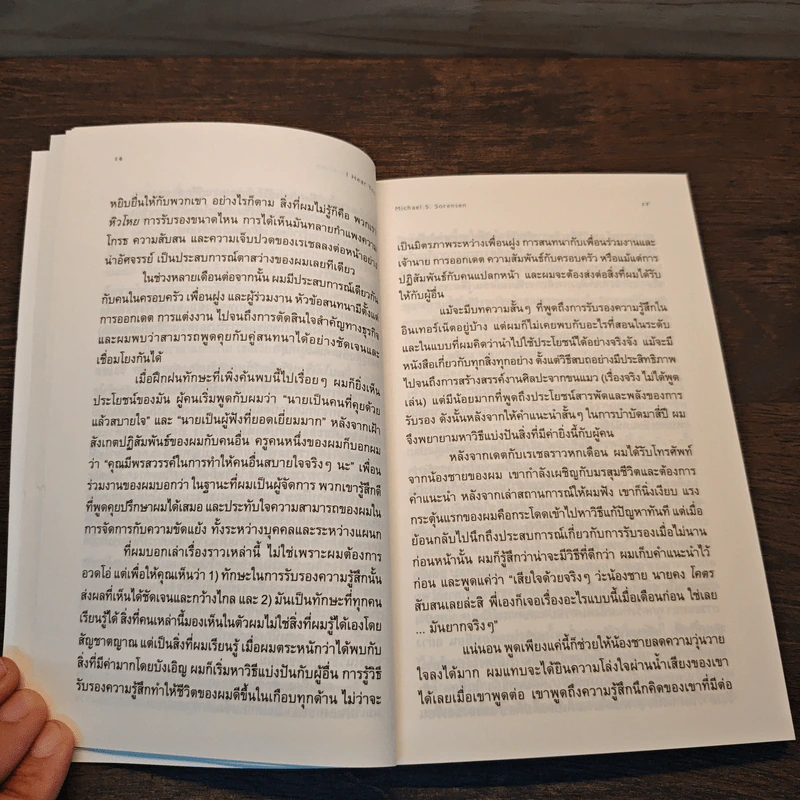 ๑๖
I Hear You
หยิบยื่นให้กับพวกเขา อย่างไรก็ตาม สิ่งที่ผมไม่รู้ก็คือ พวกเรา
หิวโหย การรับรองขนาดไหน การได้เห็นมันทลายกำแพงความ
โกรธ ความสับสน และความเจ็บปวดของเรเชลลงต่อหน้าอย่าง
น่าอัศจรรย์ เป็นประสบการณ์ตาสว่างของผมเลยทีเดียว
ในช่วงหลายเดือนต่อจากนั้น ผมมีประสบการณ์เดียวกัน
กับคนในครอบครัว เพื่อนฝูง และผู้ร่วมงาน หัวข้อสนทนามีตั้งแต่
การออกเดต การแต่งงาน ไปจนถึงการตัดสินใจสำคัญทางธุรกิจ
และผมพบว่าสามารถพูดคุยกับคู่สนทนาได้อย่างชัดเจนและ
เชื่อมโยงกันได้
เมื่อฝึกฝนทักษะที่เพิ่งค้นพบนี้ไปเรื่อยๆ ผมก็ยิ่งเห็น
ประโยชน์ของมัน ผู้คนเริ่มพูดกับผมว่า “นายเป็นคนที่คุยด้วย
แล้วสบายใจ” และ “นายเป็นผู้ฟังที่ยอดเยี่ยมมาก” หลังจากเฝ้า
สังเกตปฏิสัมพันธ์ของผมกับคนอื่น ครูคนหนึ่งของผมก็บอกผม
ว่า “คุณมีพรสวรรค์ในการทำให้คนอื่นสบายใจจริงๆ นะ” เพื่อน
ร่วมงานของผมบอกว่า ในฐานะที่ผมเป็นผู้จัดการ พวกเขารู้สึกดี
ที่พูดคุยปรึกษาผมได้เสมอ และประทับใจความสามารถของผมใน
การจัดการกับความขัดแย้ง ทั้งระหว่างบุคคลและระหว่างแผนก
ที่ผมบอกเล่าเรื่องราวเหล่านี้ ไม่ใช่เพราะผมต้องการ
อวดโอ่ แต่เพื่อให้คุณเห็นว่า 1) ทักษะในการรับรองความรู้สึกนั้น
ส่งผลที่เห็นได้ชัดเจนและกว้างไกล และ 2) มันเป็นทักษะที่ทุกคน
เรียนรู้ได้ สิ่งที่คนเหล่านี้มองเห็นในตัวผมไม่ใช่สิ่งที่ผมรู้ได้เองโดย
สัญชาตญาณ แต่เป็นสิ่งที่ผมเรียนรู้ เมื่อผมตระหนักว่าได้พบกับ
สิ่งที่มีค่ามากโดยบังเอิญ ผมก็เริ่มหาวิธีแบ่งปันกับผู้อื่น การรู้วิธี
รับรองความรู้สึกทำให้ชีวิตของผมดีขึ้นในเกือบทุกด้าน ไม่ว่าจะ
Michael S. Sorensen
๑๗
เป็นมิตรภาพระหว่างเพื่อนฝูง การสนทนากับเพื่อนร่วมงานและ
เจ้านาย การออกเดต ความสัมพันธ์กับครอบครัว หรือแม้แต่การ
ปฏิสัมพันธ์กับคนแปลกหน้า และผมจะต้องส่งต่อสิ่งที่ผมได้รับ
ให้กับผู้อื่น
แม้จะมีบทความสั้นๆ ที่พูดถึงการรับรองความรู้สึกใน
อินเทอร์เน็ตอยู่บ้าง แต่ผมก็ไม่เคยพบกับอะไรที่สอนในระดับ
และในแบบที่ผมคิดว่านำไปใช้ประโยชน์ได้อย่างจริงจัง แม้จะมี
หนังสือเกี่ยวกับทุกสิ่งทุกอย่าง ตั้งแต่วิธีสบถอย่างมีประสิทธิภาพ
ไปจนถึงการสร้างสรรค์งานศิลปะจากขนแมว (เรื่องจริง ไม่ได้พูด
เล่น) แต่มีน้อยมากที่พูดถึงประโยชน์สารพัดและพลังของการ
รับรอง ดังนั้นหลังจากให้คำแนะนำสั้นๆ ในการบำบัดมาสี่ปี ผม
จึงพยายามหาวิธีแบ่งปันสิ่งที่มีค่ายิ่งนี้กับผู้คน
หลังจากเดตกับเรเชลราวหกเดือน ผมได้รับโทรศัพท์
จากน้องชายของผม เขากำลังเผชิญกับมรสุมชีวิตและต้องการ
คำแนะนำ หลังจากเล่าสถานการณ์ให้ผมฟัง เขาก็นิ่งเงียบ แรง
กระตุ้นแรกของผมคือกระโดดเข้าไปหาวิธีแก้ปัญหาทันที แต่เมื่อ
ย้อนกลับไปนึกถึงประสบการณ์เกี่ยวกับการรับรองเมื่อไม่นาน
ก่อนหน้านั้น ผมก็รู้สึกว่าน่าจะมีวิธีที่ดีกว่า ผมเก็บคำแนะนำไว้
ก่อน และพูดแค่ว่า “เสียใจด้วยจริงๆ ว่ะน้องชาย นายคง โคตร
สับสนเลยล่ะสิ พี่เองก็เจอเรื่องอะไรแบบนี้เมื่อเดือนก่อน ใช่เลย
... มันยากจริงๆ”
แน่นอน พูดเพียงแค่นี้ก็ช่วยให้น้องชายลดความวุ่นวาย
ใจลงได้มาก ผมแทบจะได้ยินความโล่งใจผ่านน้ำเสียงของเขา
ได้เลยเมื่อเขาพูดต่อ เขาพูดถึงความรู้สึกนึกคิดของเขาที่มีต่อ